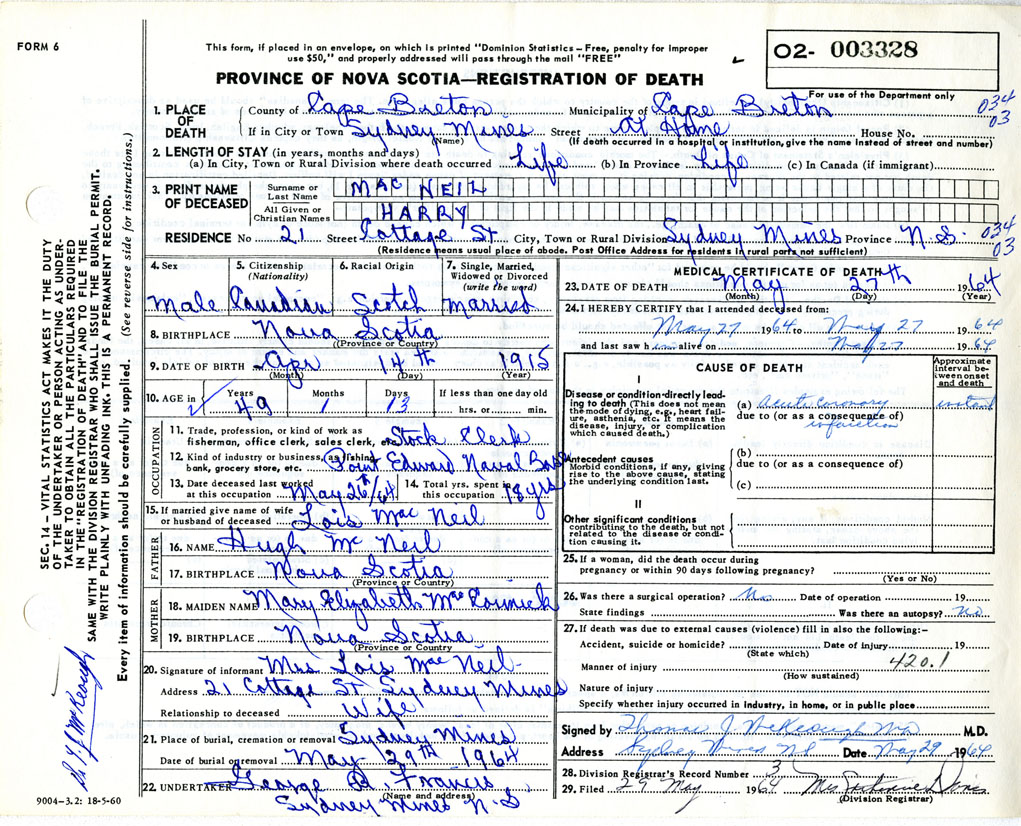 FORM 6
This form, if placed in an envelope, on which is printed "Dominion Statistics – Free, penalty for improper
use $50," and properly addressed will pass through the mail "FREE"
O2- 003328
PROVINCE OF NOVA SCOTIA—REGISTRATION OF DEATH
For use of the Department only
1. PLACE OF DEATH County of Cape Breton Municipality of Cape Breton 034
If in City or Town Sydney Mines Street At Home House No. 03
(Name) (If death occurred in a hospital or institution, give the name instead of street and number)
2. LENGTH OF STAY (in years, months and days)
(a) In City, Town or Rural Division where death occurred Life (b) In Province Life (c) In Canada (if immigrant)
3. PRINT NAME OF DECEASED Surname or Last Name MAC NEIL
All Given or Christian Names HARRY
RESIDENCE No 21 Street Cottage St City, Town or Rural Division Sydney Mines Province N.S. 034 03
(Residence means usual place of abode. Post Office Address for residents in rural parts not sufficient)
4. Sex Male
5. Citizenship (Nationality) Canadian
6. Racial Origin Scotch
7. Single, Married, Widowed or Divorced (write the word) Married
8. BIRTHPLACE Nova Scotia
(Province or Country)
9. DATE OF BIRTH Apr 14th 1915
(Month) (Day) (Year)
10. AGE in Years 49 Months 1 Days 13 If less than one day old hrs. or min.
OCCUPATION
11. Trade, profession, or kind of work as fisherman, office clerk, sales clerk, etc. Stock Clerk
12. Kind of industry or business, as fishing, bank, grocery store, etc. Point Edward Naval Base
13. Date deceased last worked at this occupation May 26th/64
14. Total yrs. spent in this occupation 18 yrs
15. If married give name of wife or husband of deceased Lois Mac Neil
FATHER
16. NAME Hugh Mc Neil
17. BIRTHPLACE Nova Scotia
(Province or Country)
MOTHER
18. MAIDEN NAME Mary Elizabeth MacCormick
19. BIRTHPLACE Nova Scotia
(Province or Country)
20. Signature of informant Mrs Lois Mac Neil
Address 21 Cottage St Sydney Mines
Relationship to deceased Wife
21. Place of burial, cremation or removal Sydney Mines
Date of burial or removal May 29th 1964
22. UNDERTAKER George D. Francis
(Name and address)
Sydney Mines N.S
9004-3.2: 18-5-60
MEDICAL CERTIFICATE OF DEATH
23. DATE OF DEATH May 27th 1964
(Month) (Day) (Year)
24. I HEREBY CERTIFY that I attended deceased from:
May 27 1964 to May 27 1964
and last saw him alive on May 27 1964
CAUSE OF DEATH
Approximate interval between onset and death
I
Disease or condition directly leading to death (This does not mean the mode of dying, e.g., heart failure, asthenia, etc. It means the disease, injury, or complication which caused death.)
(a) Acute Coronary instant
due to (or as a consequence of)
infarction
Antecedent causes
Morbid conditions, if any, giving rise to the above cause, stating the underlying condition last.
(b)
due to (or as a consequence of)
(c)
II
Other significant conditions
contributing to the death, but not related to the disease or condition causing it.
25. If a woman, did the death occur during
pregnancy or within 90 days following pregnancy?
(Yes or No)
26. Was there a surgical operation? No Date of operation 19
State findings Was there an autopsy? No
27. If death was due to external causes (violence) fill in also the following:–
Accident, suicide or homicide? Date of injury 19
(State which)
Manner of injury 420.1
(How sustained)
Nature of injury
Specify whether injury occurred in Industry, in home, or in public place
Signed by Thomas J. McKeough MD M.D.
Address Sydney Mines NS Date May 29 1964
28. Division Registrar's Record Number 3
29. Filed 29 May 1964 Mrs
(Division Registrar)
SEC. 14 – VITAL STATISTICS ACT MAKES IT THE DUTY
OF THE UNDERTAKER OR PERSON ACTING AS UNDER-
TAKER TO OBTAIN ALL THE PARTICULARS REQUIRED
IN THE "REGISTRATION OF DEATH" AND TO FILE THE
SAME WITH THE DIVISION REGISTRAR WHO SHALL ISSUE THE BURIAL PERMIT.
WRITE PLAINLY WITH UNFADING INK. THIS IS A PERMANENT RECORD.
Every item of information should be carefully supplied. (See reverse side for instructions.)
McKeough